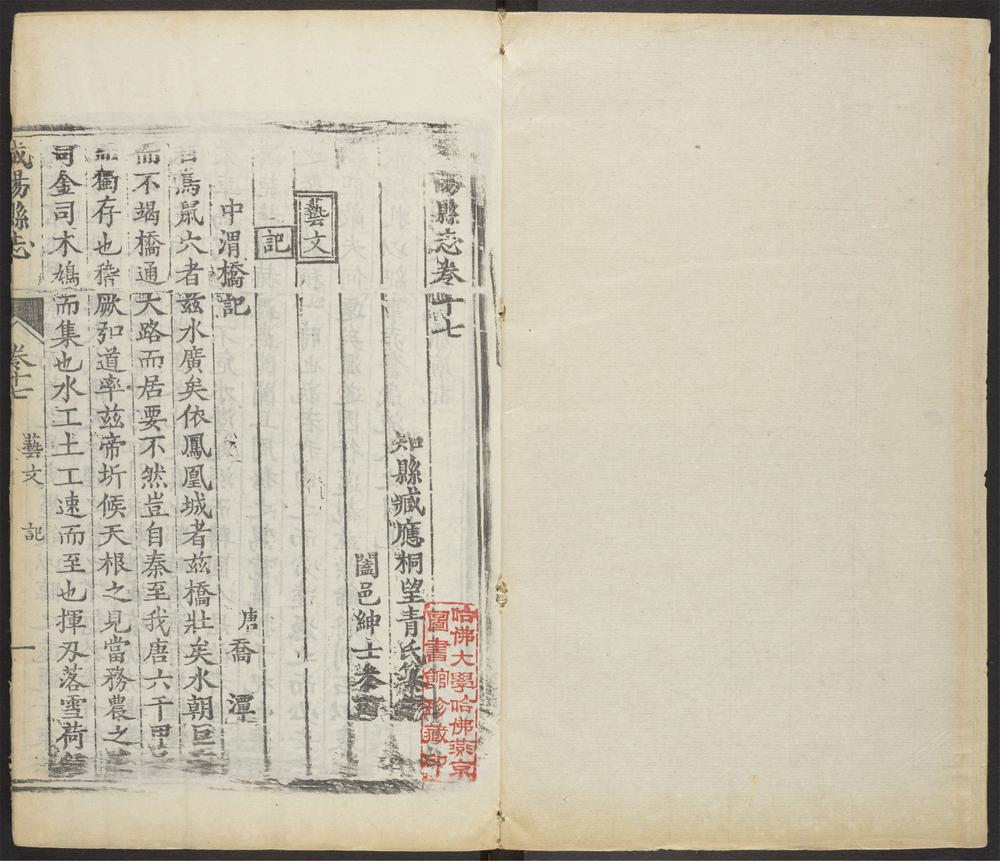 陽縣志卷十七
知縣臧應桐望青氏纂
闔邑紳士參
藝文
記
中渭橋記
唐喬潭
鳥鼠穴者茲水廣矣依鳳凰城者茲橋壯矣水朝巨
而不竭橋通大路而居要不然豈自秦至我唐六千甲
獨存也稽厥弘道率茲帝圻候天根之見當務農之
司金司木鳩而集也水工土工速而至也揮刃落雪荷
咸陽縣志
卷十七
藝文
記
一
哈佛大學哈佛燕京
圖書館珍藏印